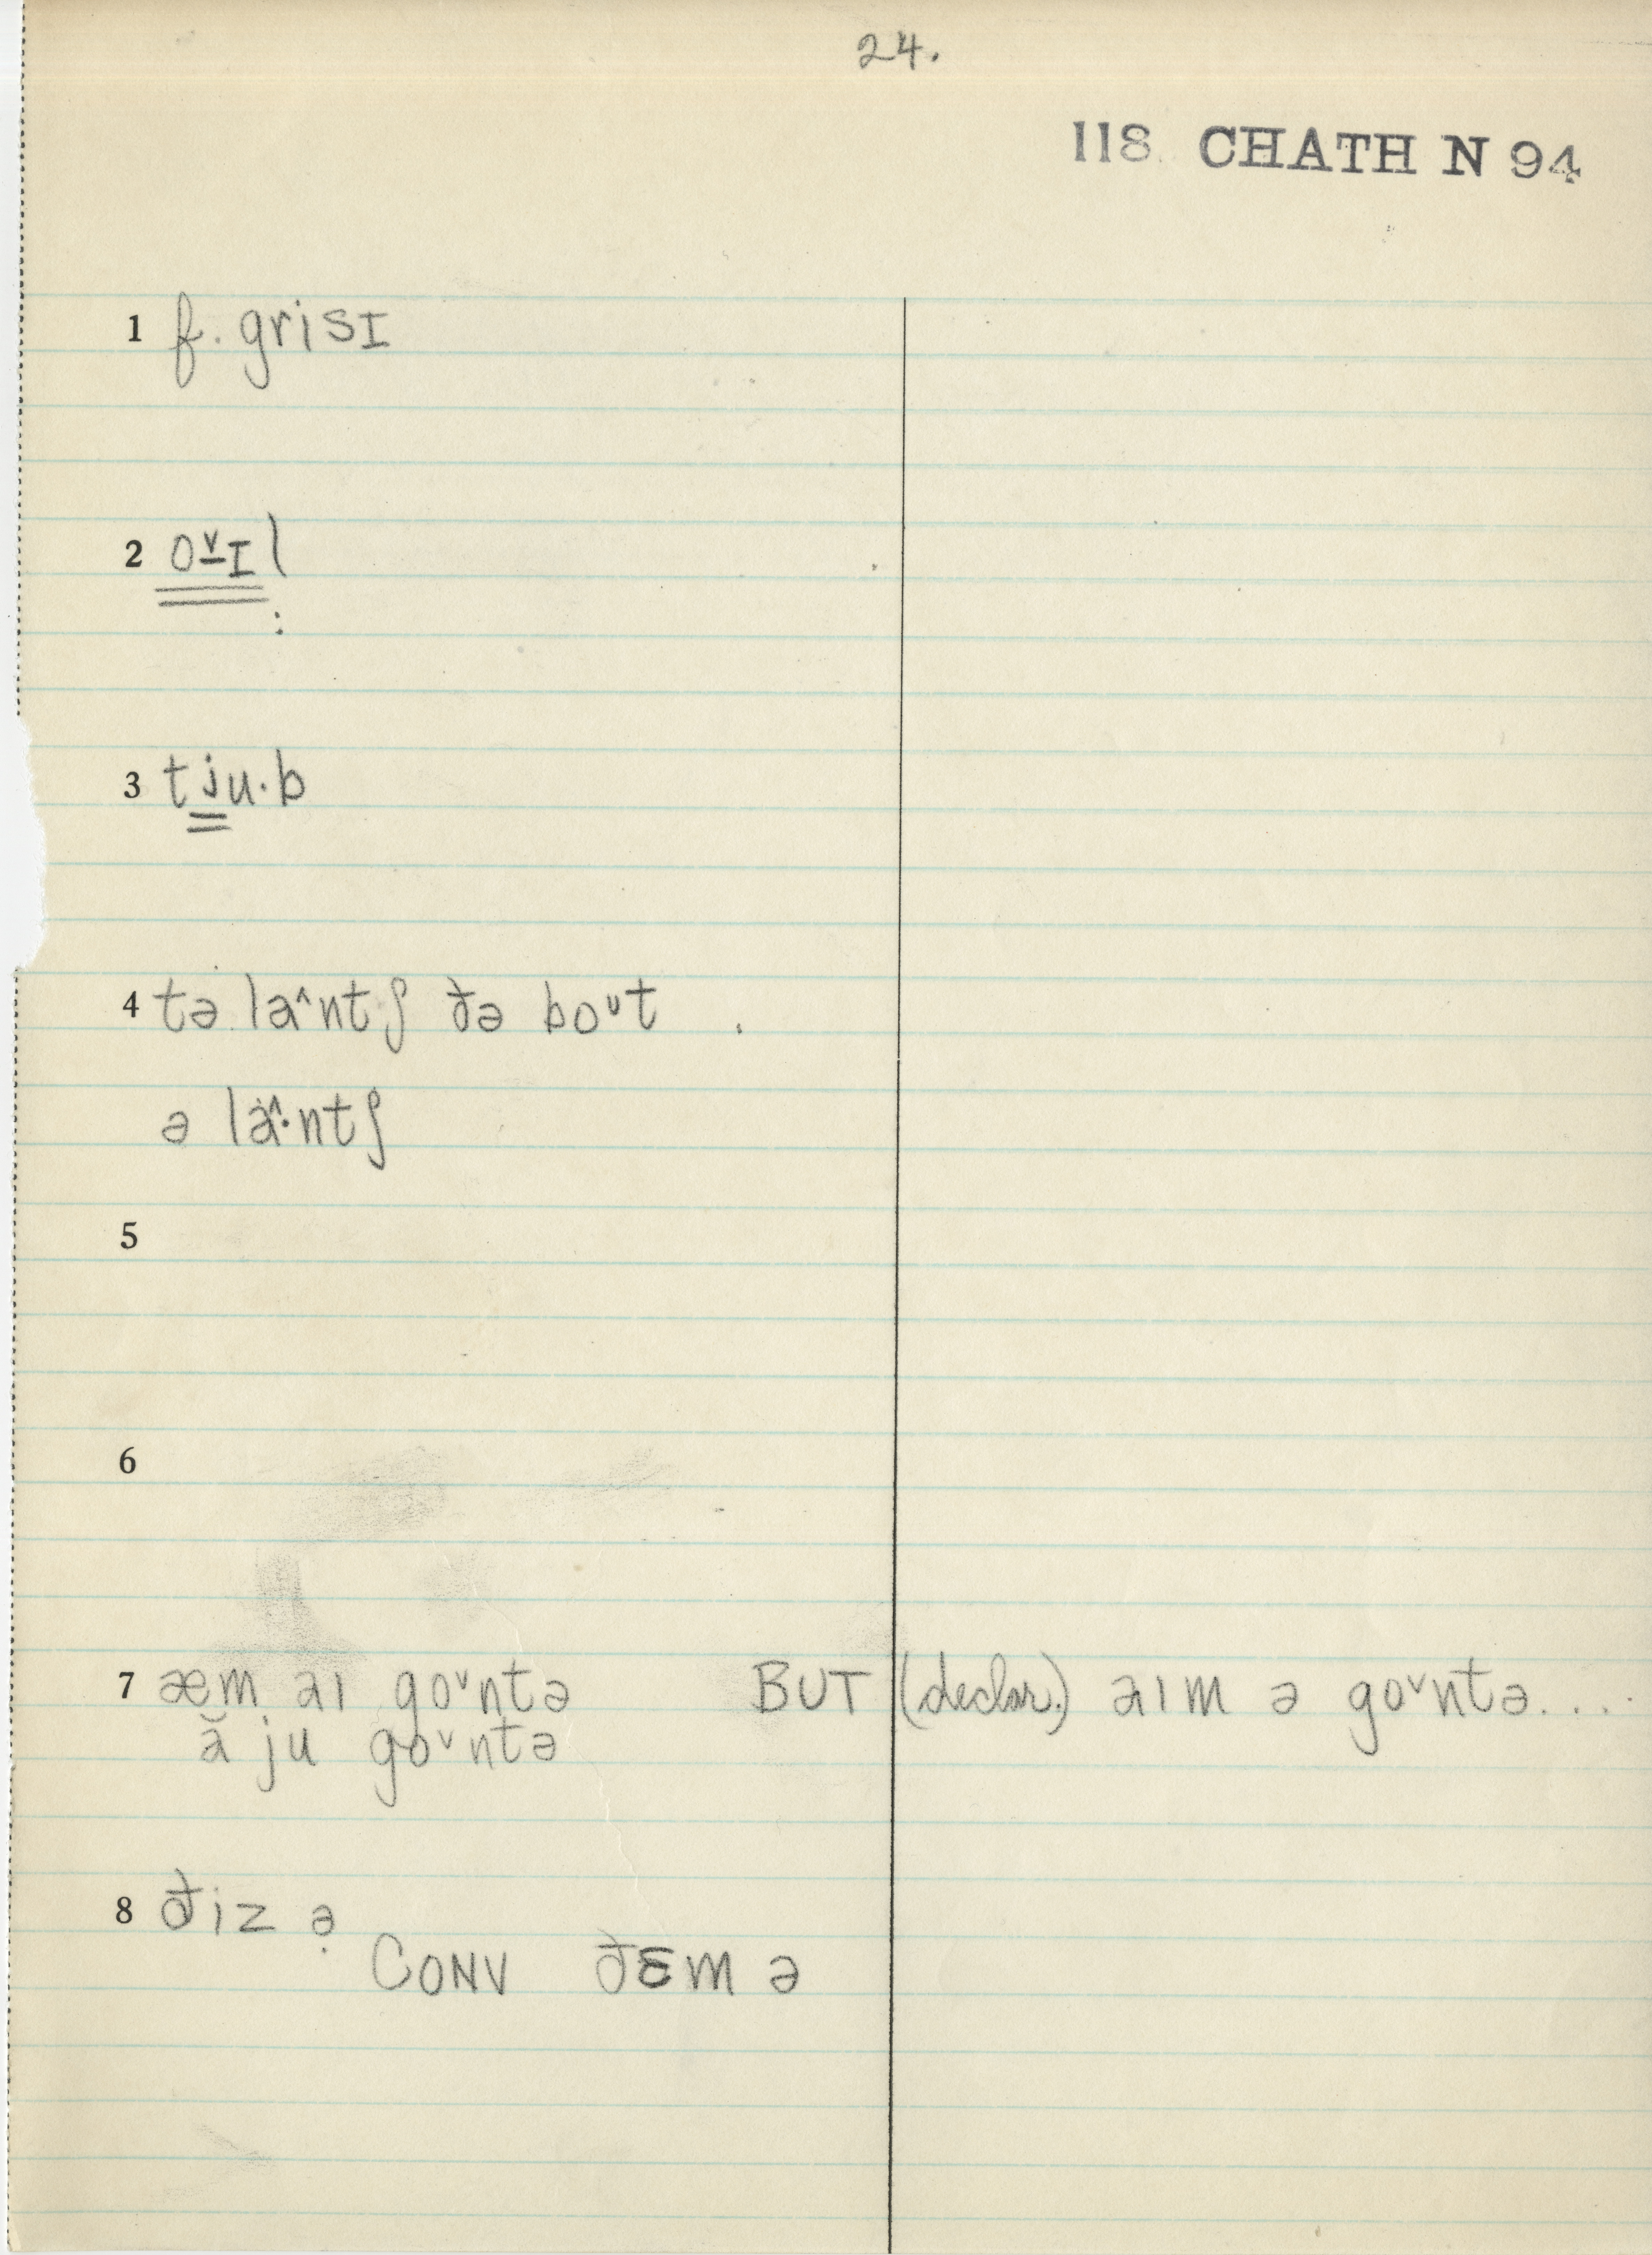 24.
118 CHATH N 94
1 f. grisɪ
2 o˅ɪl
:
3 tju·b
4 tə la^ntʃ ðə boᶷt .
ə la^·ntʃ
5
6
7 æm aɪ go˅ntə BUT (declar.) aɪm ə go˅ntə....
ă ju go˅ntə
8 ðiz ə̣
CONV ðɛm ə